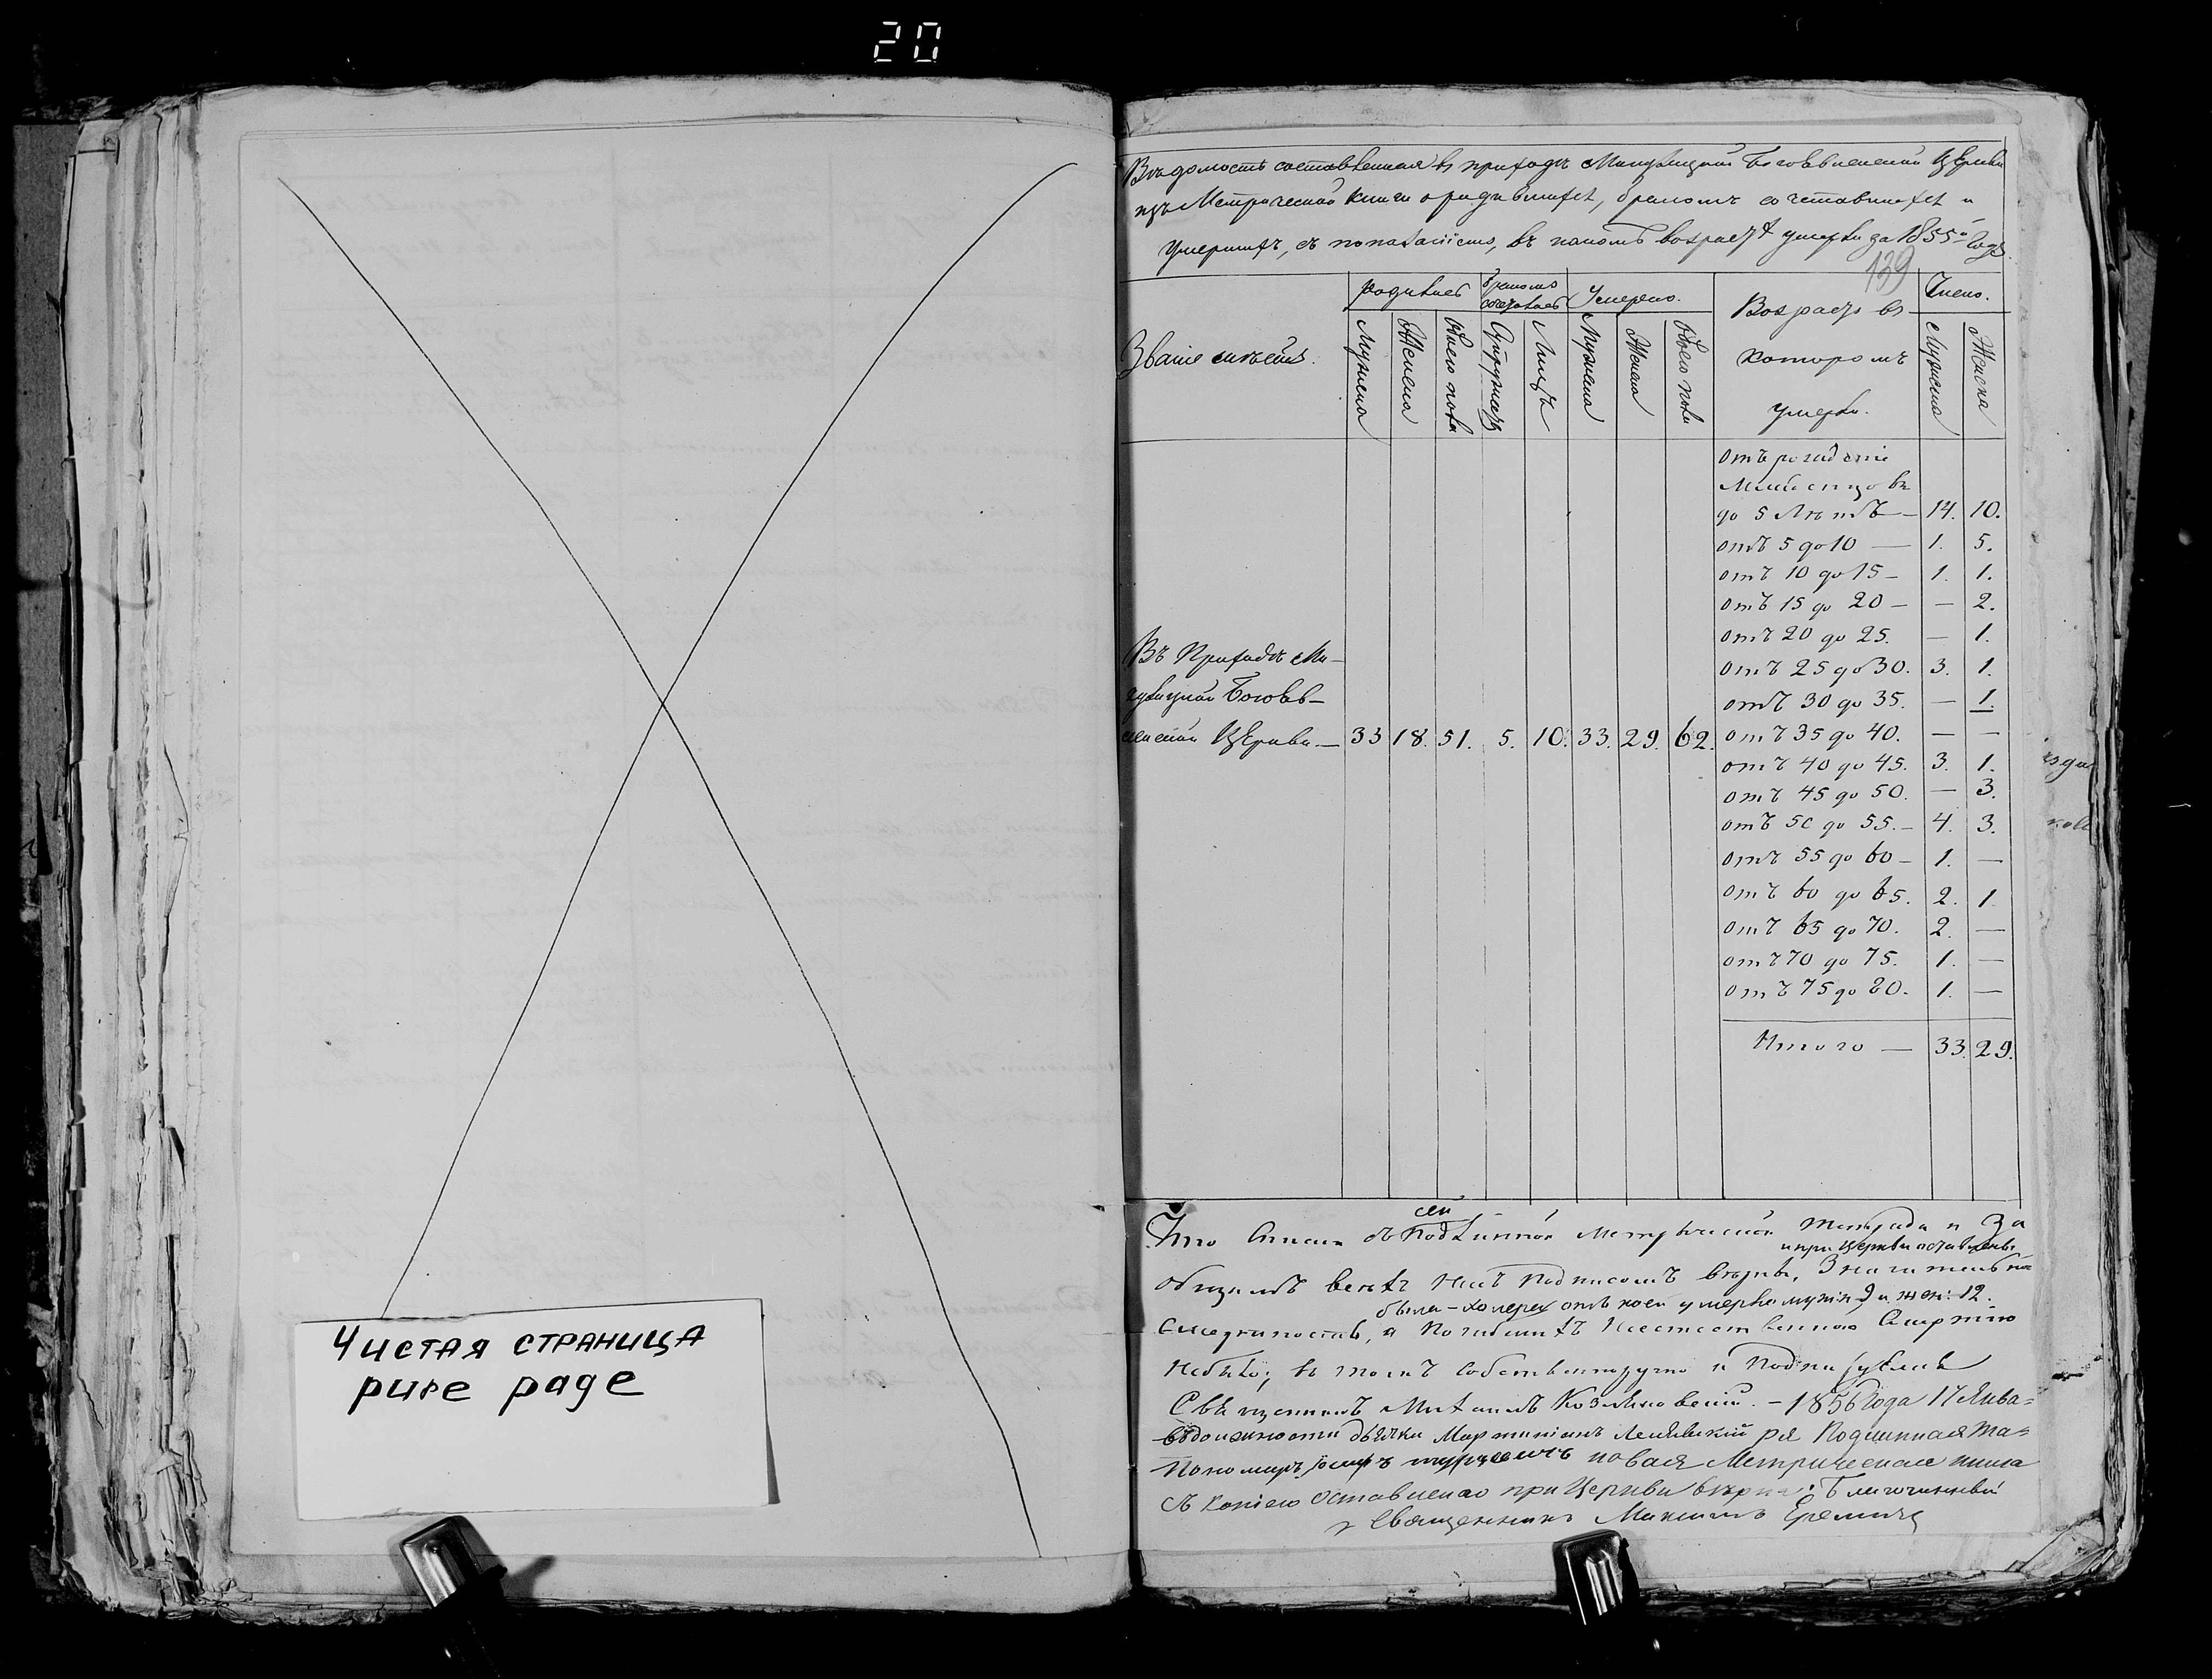 20
Чистая страница
pure page
Вѣдомость составленная въ приходѣ Богоявленской Церкви
изъ Метрической книги о родившихся, бракомъ сочетавшихся и
умершихъ, съ показаніемъ, въ какомъ возрастѣ умерли за 1855й годъ.
139
Званіе
родилось
бракомъ
сочеталось
Умерло.
Возрастъ въ
котором
умерли.
Число.
Мужеска
Женска
Обоего пола
Супружествъ
Лицъ
Мужеска
Женска
Обоего пола
Мужеска
Женска
отъ рожденія
до 5 Лѣтъ — 14. 10.
отъ 5 до 10 — 1. 5.
отъ 10 до 15 — 1. 1.
отъ 15 до 20 — — 2.
отъ 20 до 25. — 1.
отъ 25 до 30. 3. 1.
отъ 30 до 35. — 1.
отъ 35 до 40. — —
отъ 40 до 45. 3. 1.
отъ 45 до 50. — 3.
отъ 50 до 55. — 4. 3.
отъ 55 до 60 — 1. —
отъ 60 до 65. 2. 1.
отъ 65 до 70. 2. —
отъ 70 до 75. 1. —
отъ 75 до 80. 1. —
Итого — 33. 29.
Въ Приходѣ Ми-
Богояв-
ленской Церкви — 33 18. 51. 5. 10. 33. 29. 62.
Что съ сей подлинной Метрической тетради и За
и при Церкви оставлены
общимъ всѣхъ насъ подписомъ вѣрны, Значительно
была — холера отъ коей умерло муж: 9 и жен: 12.
а погибшихъ неестественною Смертію
небыло; въ томъ собственноручно и подписуемся
Священникъ Михаилъ — 1856 года 17 Янва=
въ должности дьячка Мартиніанъ ря Подлинная та=
Пономарь новая Метрическая книга
съ копіею оставленою при Церкви вѣрна: Благочинный
Священникъ Максимъ Еремичъ